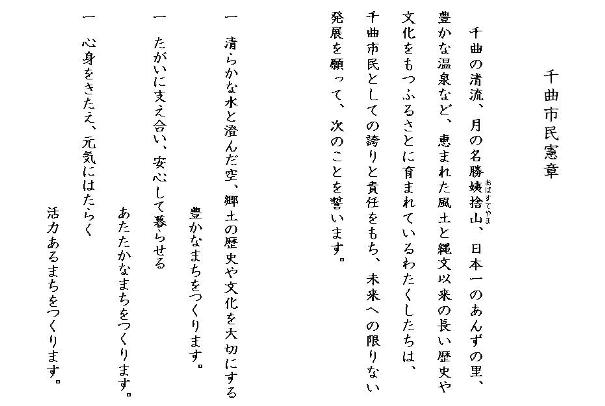 千曲市民憲章
千曲の清流、月の名勝姨捨山、日本一のあんずの里、
おばすてやま
豊かな温泉など、恵まれた風土と縄文以来の長い歴史や
文化をもつふるさとに育まれているわたくしたちは、
千曲市民としての誇りと責任をもち、未来への限りない
発展を願って、次のことを誓います。
一 清らかな水と澄んだ空、郷土の歴史や文化を大切にする
豊かなまちをつくります。
一 たがいに支え合い、安心して暮らせる
あたたかなまちをつくります。
一 心身をきたえ、元気にはたらく
活力あるまちをつくります。